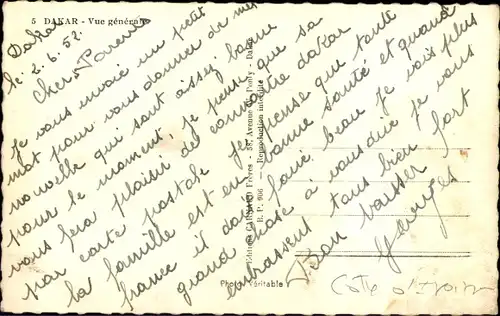 5 DAKAR - Vue générale
Dakar
le 2.6.52.
Chers Parents
je vous envoie un petit
mot pour vous donner de mes
nouvelle qui sont assez bonne
pour le moment, je pense que sa
vous fera plaisir de connaitre dakar
par carte postale je pense que tante
la famille est en bonne santé et quand
france il doit faire beau je vois plus
grand chose a vous dire je vous
embrassent tous bien fort
Bon baiser
Georges
Editions CARNARD Frères - 58, Avenue Wm Ponty - Dakar
E. P. 906 — Reproduction interdite
Photo Véritable
Cote d'Ivoire